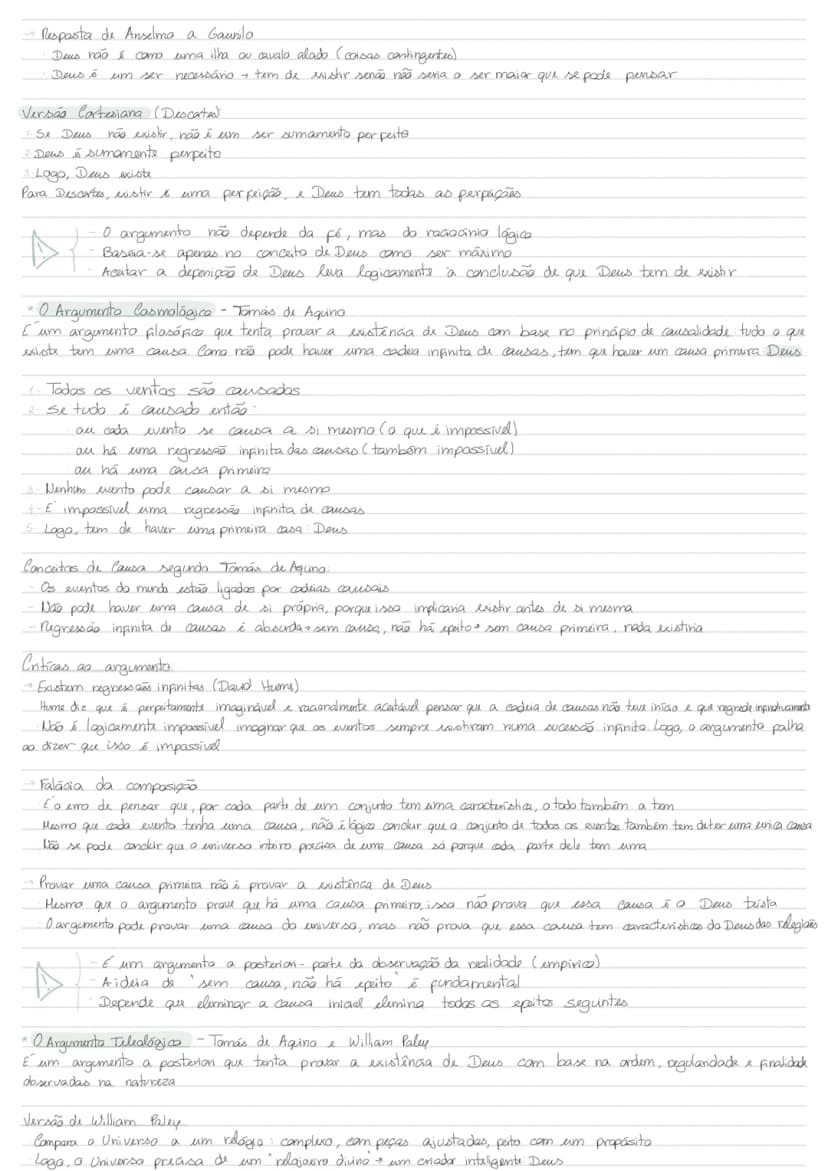 → Resposta de Anselmo a Gaunilo
· Deus não é como uma ilha ou cavalo alado (coisas contingentes)
· Deus é um ser necessário → tem de existir senão não seria o ser maior que se pode pensar
Versão Cartesiana (Descartes)
1- Se Deus não existir, não é um ser sumamente perfeito
2- Deus é sumamente perfeito
3- Logo, Deus existe
Para Descartes, existir é uma perfeição, e Deus tem todas as perfeições
- O argumento não depende da fé, mas do raciocínio lógico
- Baseia-se apenas no conceito de Deus como ser máximo
- Aceitar a definição de Deus leva logicamente à conclusão de que Deus tem de existir
* O Argumento Cosmológico - Tomás de Aquino
É um argumento filosófico que tenta provar a existência de Deus com base no princípio de causalidade: tudo o que
existe tem uma causa. Como não pode haver uma cadeia infinita de causas, tem que haver um causa primeira: Deus
1- Todos os ventos são causados
2- Se tudo é causado então:
ou cada evento se causa a si mesmo (o que é impossível)
ou há uma regressão infinita das causas (também impossível)
ou há uma causa primeira
3- Nenhum evento pode causar a si mesmo
4- É impossível uma regressão infinita de causas
5- Logo, tem de haver uma primeira casa: Deus
Conceitos de Causa segundo Tomás de Aquino:
- Os eventos do mundo estão ligados por cadeias causais
- Não pode haver uma causa de si própria, porque isso implicaria existir antes de si mesma
- Regressão infinita de causas é absurda → sem causa, não há efeito → sem causa primeira, nada existiria
Críticas ao argumento:
→ Existem regressões infinitas (David Hume)
Hume diz que é perfeitamente imaginável e racionalmente aceitável pensar que a cadeia de causas não teve início e que regrede infinitivamente
Não é logicamente impossível imaginar que os eventos sempre existiram numa sucessão infinita. Logo, o argumento falha
ao dizer que isso é impossível
→ Falácia da composição
É o erro de pensar que, por cada parte de um conjunto tem uma característica, o todo também a tem
Mesmo que cada evento tenha uma causa, não é lógico concluir que o conjunto de todos os eventos também tem de ter uma única causa
Não se pode concluir que o universo inteiro precisa de uma causa só porque cada parte dele tem uma
→ Provar uma causa primeira não é provar a existência de Deus
Mesmo que o argumento prove que há uma causa primeira, isso não prova que essa causa é o Deus teísta
O argumento pode provar uma causa do universo, mas não prova que essa causa tem características do Deus das religiões
- É um argumento a posteriori - parte da observação da realidade (empírico)
- A ideia de "sem causa, não há efeito" é fundamental
- Depende que eleminar a causa inicial elemina todos os efeitos seguintes
* O Argumento Teleológico - Tomás de Aqino e William Paley
É um argumento a posteriori que tenta provar a existência de Deus com base na ordem, regularidade e finalidade
observadas na natureza
Versão de William Paley
Compara o Universo a um relógio: complexo, com peças ajustadas, feito com um propósito
Logo, o Universo precisa de um "relojoeiro divino" → um criador inteligente: Deus